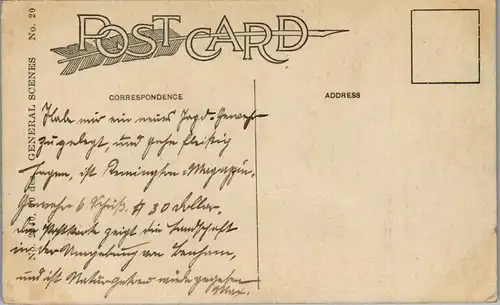 POST CARD
GENERAL SCENES No. 20
CORRESPONDENCE
ADDRESS
Habe mir ein neues Jagd-Gewehr
zugelegt, und gehe fleißig
jagen, ist Remington-Magazin-
Gewehr 6 Schuß. $ 30 Dollar.
die Postkarte zeigt die Landschaft
in der Umgebung von
und ist Naturgetreu wiedergegeben
Max.